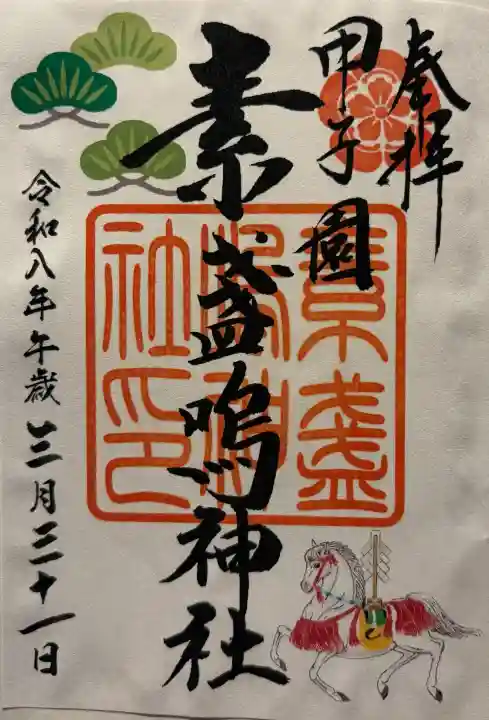 奉拝
甲子園
素盞嗚神社
素盞
嗚神
社印
令和八年午歳三月三十一日